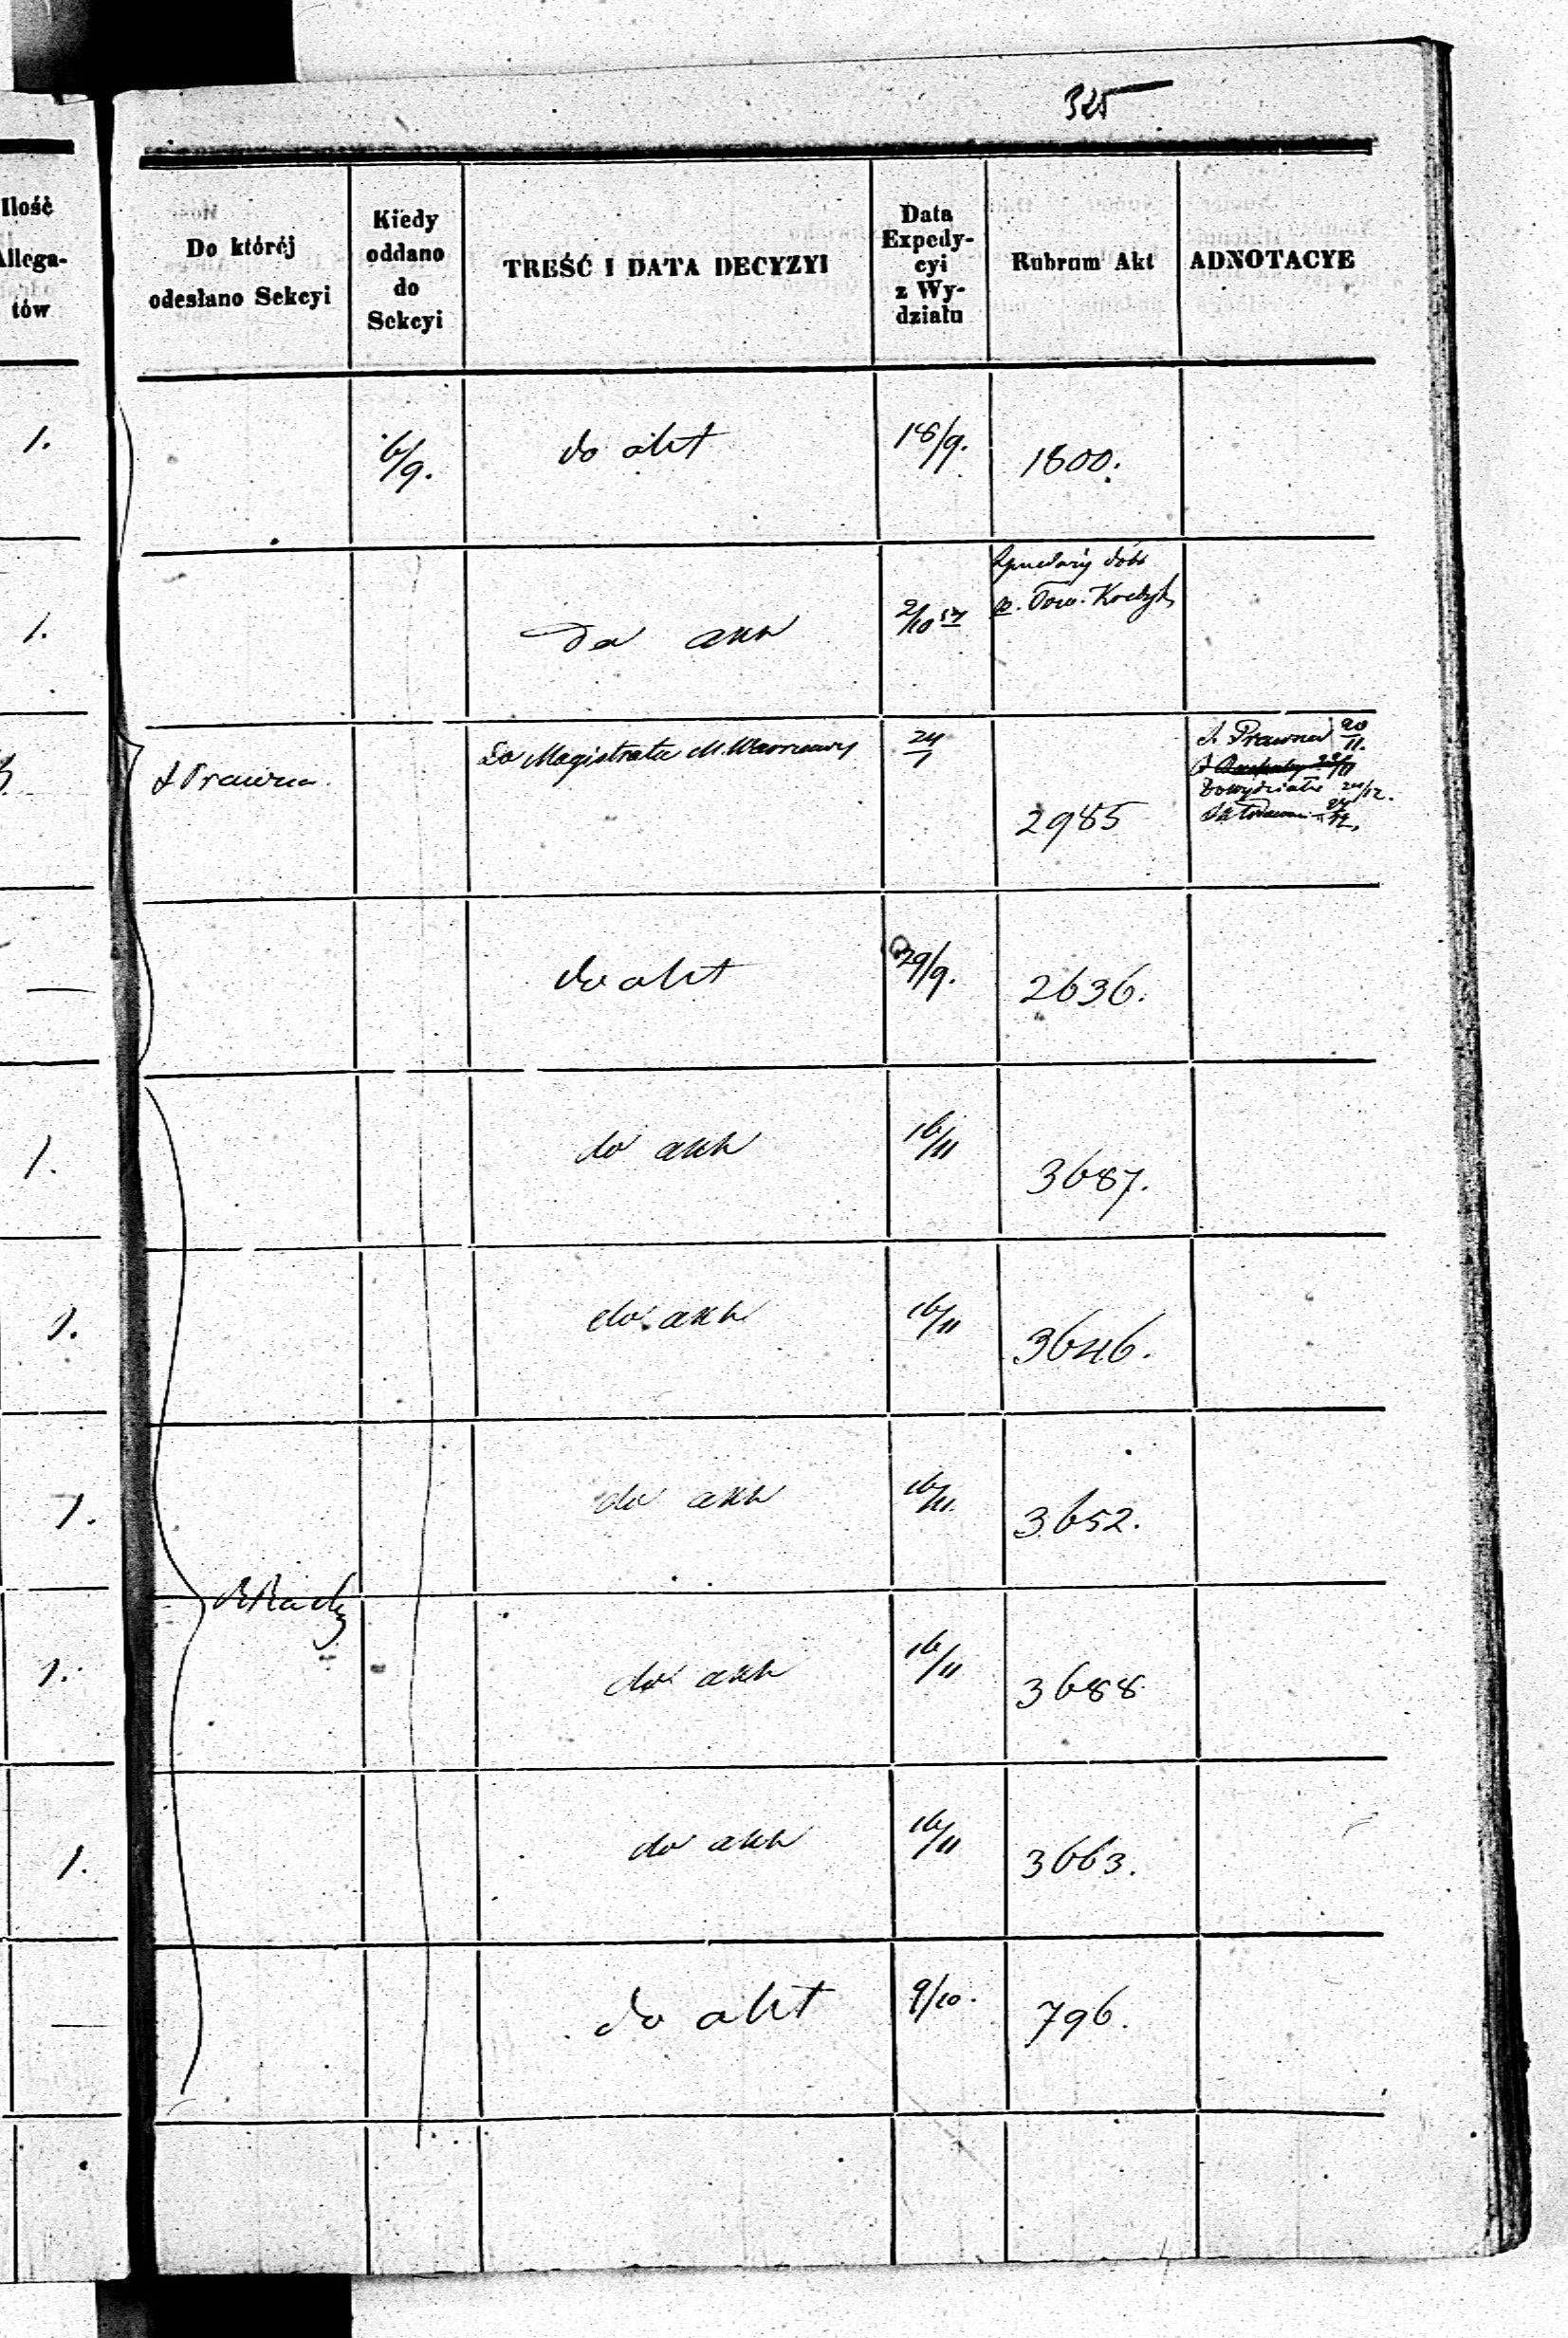 325
Ilość
Allega-
tów
Do któréj
odesłano Sekcyi
Kiedy
oddano
do
Sekcyi
TREŚĆ I DATA DECYZYI
Data
Expedy-
cyi
z Wy-
działu
Rubrum Akt
ADNOTACYE
1.
6/9.
do akt
18/9.
1800.
1.
Do akt
2/10 57
Sprzedaży dóbr
p. Tow. Kredyt
S Prawna
Do Magistratu M. Warszawy
24/1
2985
S. Prawna 20/11.
Do wydziału 20/12.
—
do akt
29/9.
2636.
1.
do akt
16/11
3687.
1.
do akt
16/11
3646.
1.
do akt
16/11.
3652.
1.
do akt
16/11
3688
1.
do akt
16/11
3663.
—
do akt
9/10.
796.